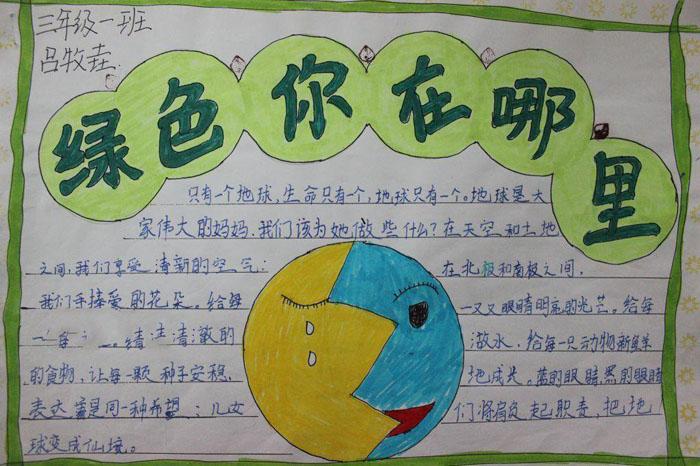 三年级一班
吕牧垚
绿色你在哪里
只有一个地球,生命只有一个,地球只有一个。地球是大
家伟大的妈妈.我们该为她做些什么?在天空和土地
之间,我们享受清新的空气; 在北极和南极之间,
我们手接爱的花朵。给每 一又又眼睛明亮的光芒。给每
一 清澈的 水,给每一只动物新鲜
的食物,让每一颗种子安稳 地成长。蓝的眼睛,黑的眼睛
表达着是同一种希望:儿女 们将肩负起职责,把地
球变成仙境。